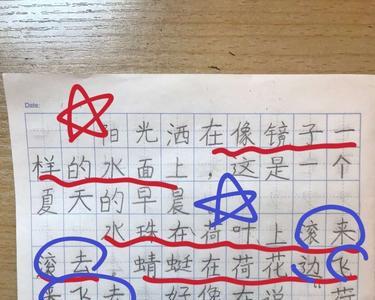 Date:
阳光洒在像镜子一
样的水面上,这是一个
夏天的早晨
水珠在荷叶上滚来
滚去,蜻蜓在荷花边飞
来飞去 好像在说